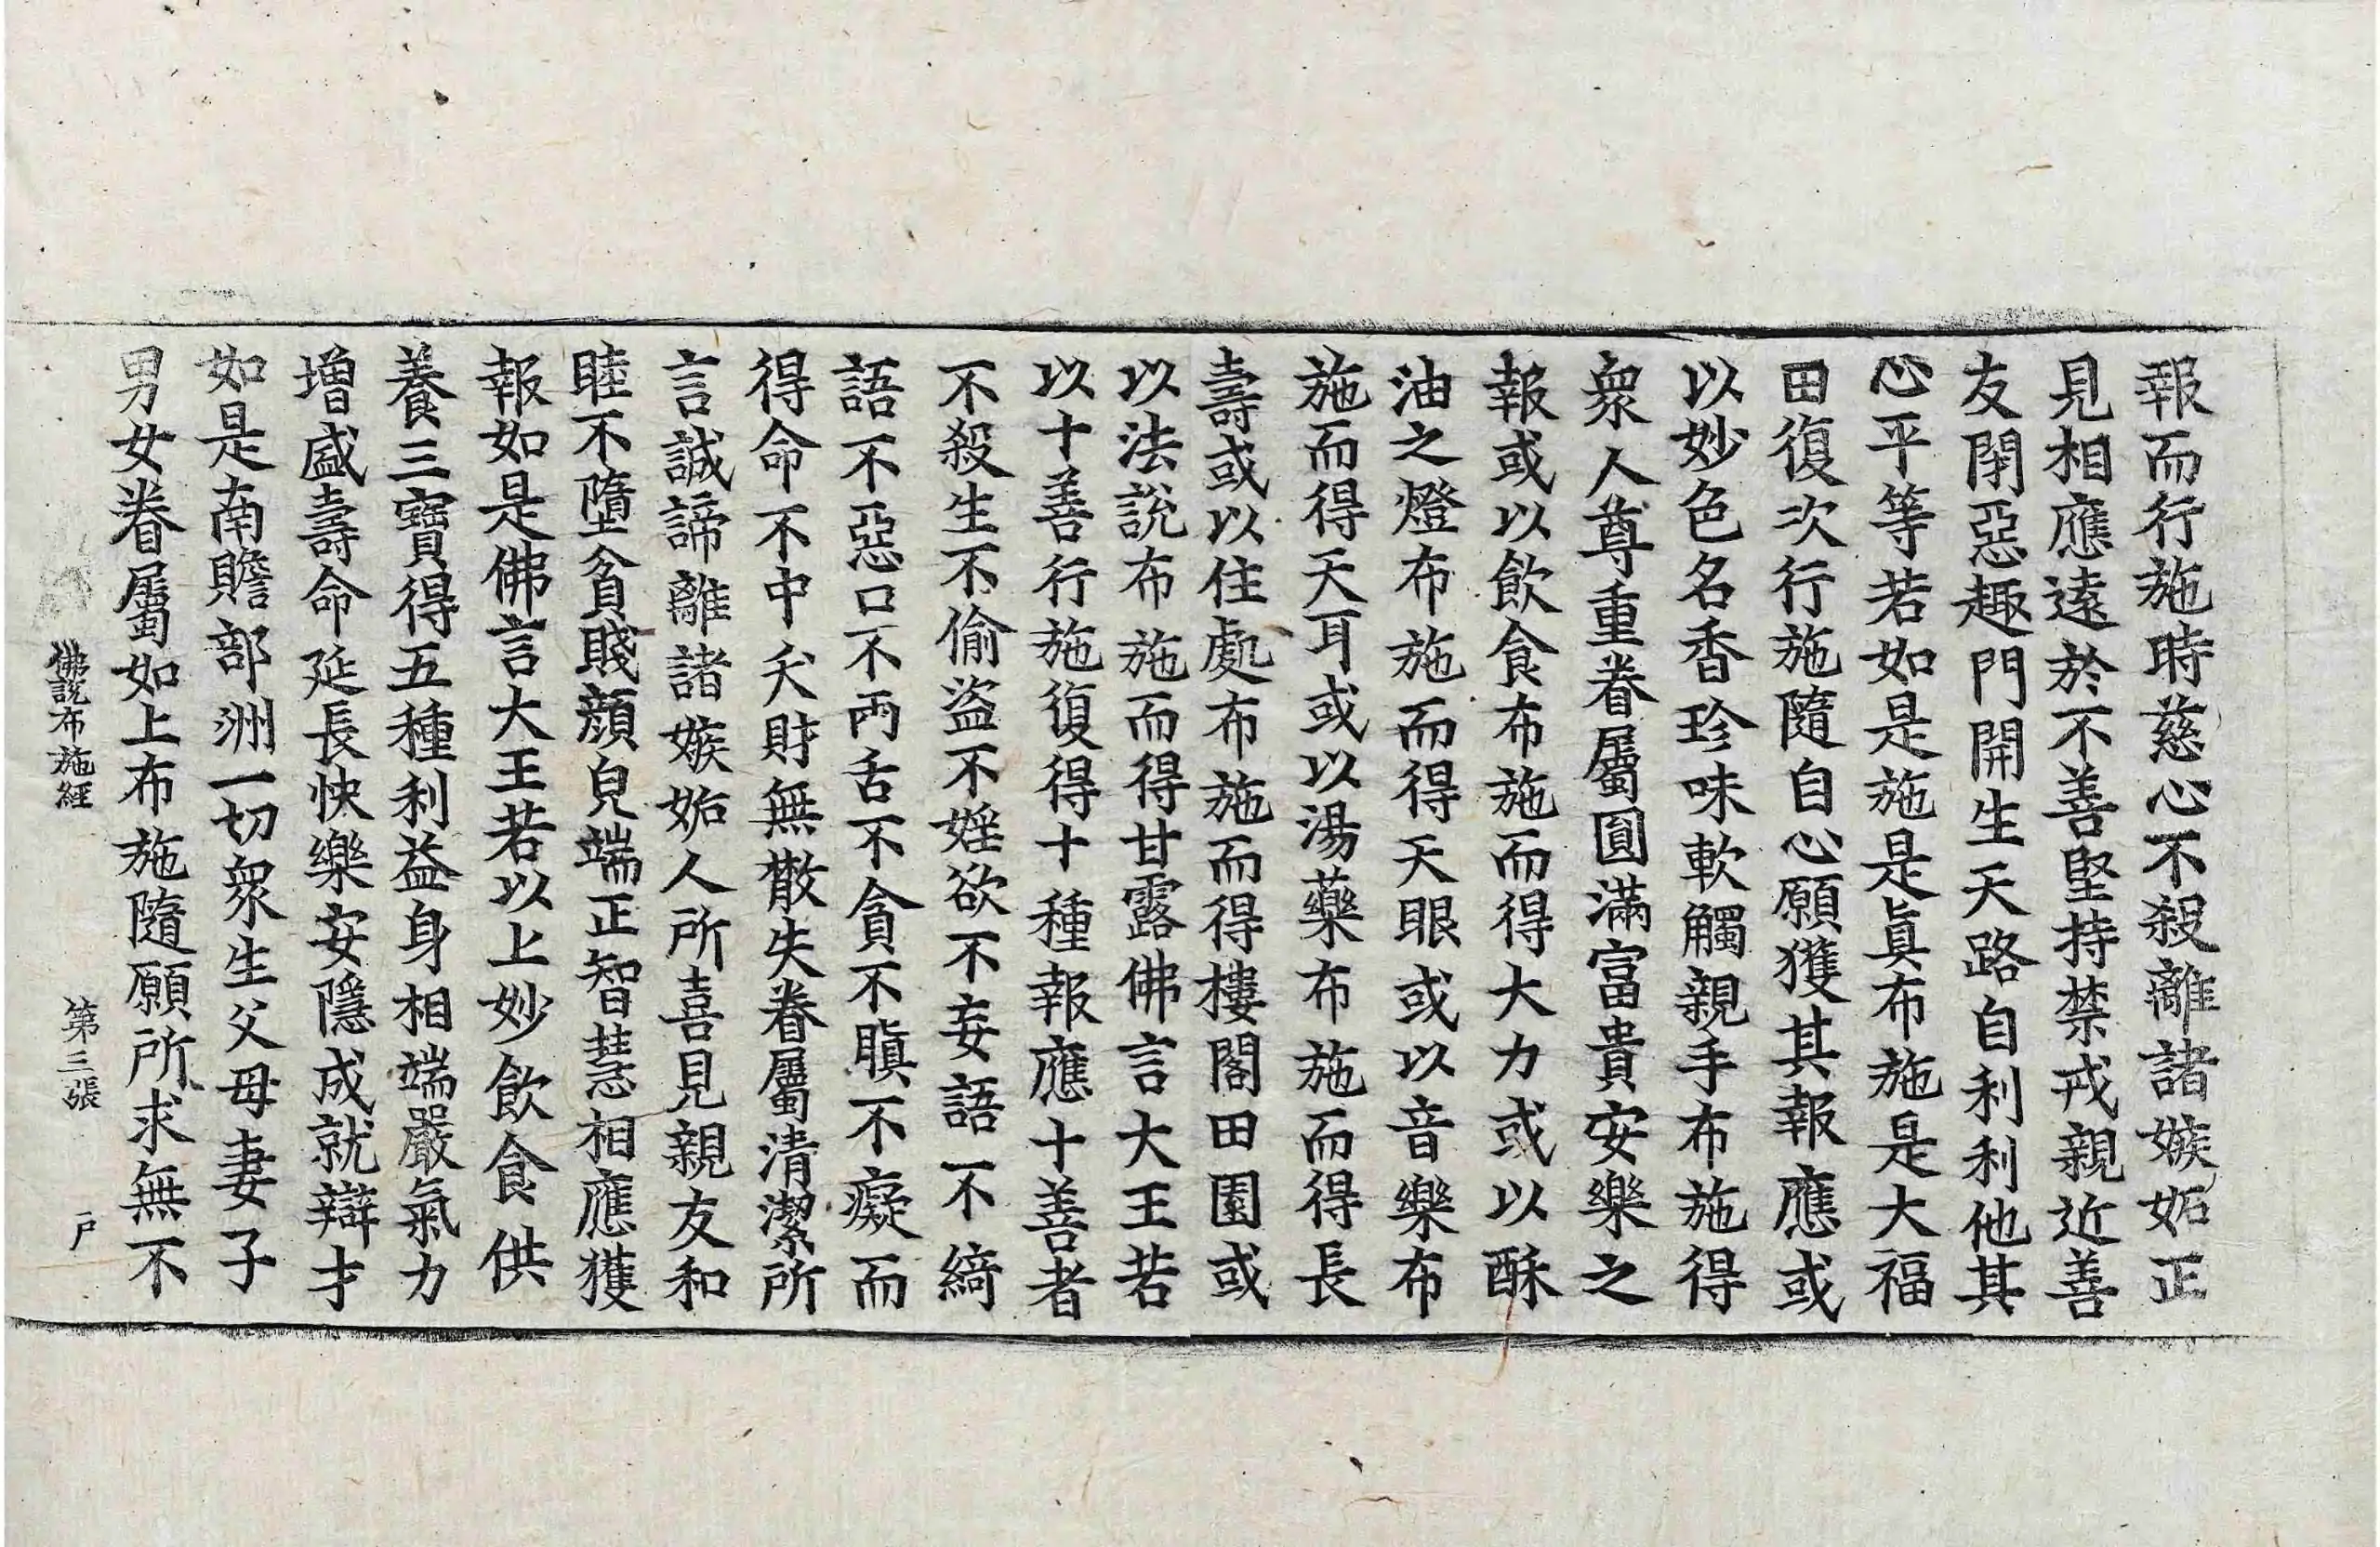 報而行施時慈心不殺離諸嫉妬正
見相應遠於不善堅持禁戒親近善
友閉惡趣門開生天路自利利他其
心平等若如是施是眞布施是大福
田復次行施隨自心願獲其報應或
以妙色名香珍味軟觸親手布施得
衆人尊重眷屬圓滿富貴安樂之
報或以飲食布施而得大力或以酥
油之燈布施而得天眼或以音樂布
施而得天耳或以湯藥布施而得長
壽或以住處布施而得樓閣田園或
以法說布施而得甘露佛言大王若
以十善行施復得十種報應十善者
不殺生不偷盜不婬欲不妄語不綺
語不惡口不兩舌不貪不瞋不癡而
得命不中夭財無散失眷屬清潔所
言誠諦離諸嫉妬人所喜見親友和
睦不墮貧賤顔皃端正智慧相應獲
報如是佛言大王若以上妙飲食供
養三寶得五種利益身相端嚴氣力
增盛壽命延長快樂安隱成就辯才
如是南贍部洲一切衆生父母妻子
男女眷屬如上布施隨願所求無不
佛說布施經 第三張 户